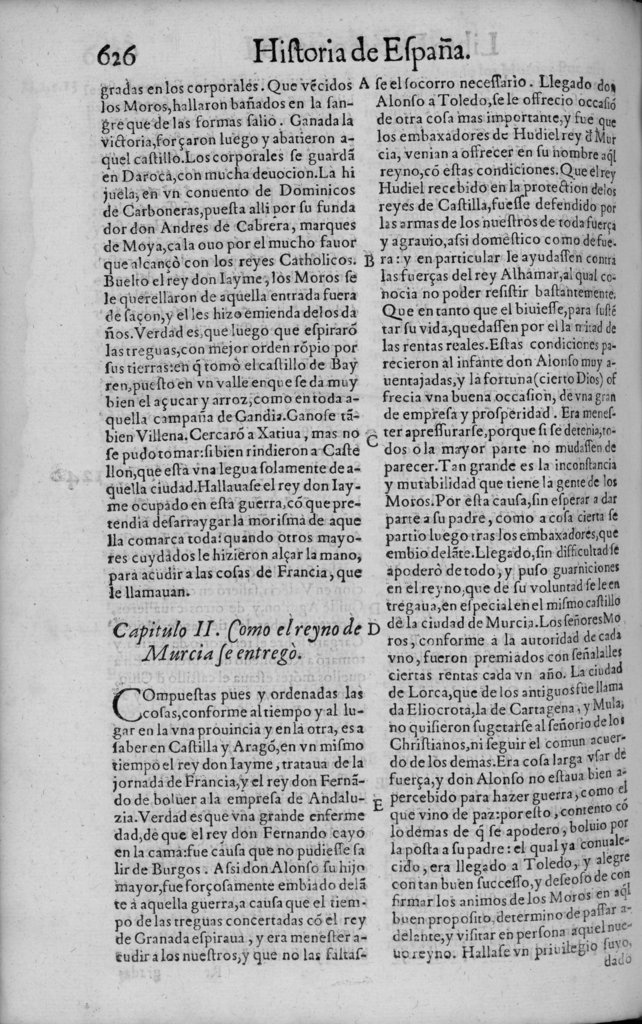 626
Hiſtoria de Eſpaña.
gradas en los corporales. Que vẽcidos
los Moros, hallaron bañados en la ſan-
gre que de las formas ſalio. Ganada la
victoria, forçaron luego y abatieron a-
quel caſtillo. Los corporales ſe guardã
en Daroca, con mucha deuocion. La hi
juela, en vn conuento de Dominicos
de Carboneras, pueſta alli por ſu funda
dor don Andres de Cabrera, marques
de Moya, ca la ouo por el mucho fauor
que alcançò con los reyes Catholicos.
Buelto el rey don Iayme, los Moros ſe
le querellaron de aquella entrada fuera
de ſaçon, y el les hizo emienda de los da
ños. Verdad es, que luego que eſpiraró
las treguas, con mejor orden rópio por
ſus tierras: en q̃ tomó el caſtillo de Bay
ren, pueſto en vn valle en que ſe da muy
bien el açucar y arroz, como en toda a-
quella campaña de Gandia. Ganoſe tã-
bien Villena. Cercaró a Xatiua, mas no
ſe pudo tomar: ſi bien rindieron a Caſte
llon, que eſtá vna legua ſolamente de a-
quella ciudad. Hallauaſe el rey don Iay-
me ocupado en eſta guerra, có que pre-
tendia deſarraygar la moriſma de aque
lla comarca toda: quando otros mayo-
res cuydados le hizieron alçar la mano,
para acudir a las coſas de Francia, que
le llamauan.
Capitulo II. Como el reyno de
Murcia ſe entregò.
COmpueſtas pues y ordenadas las
coſas, conforme al tiempo y al lu-
gar en la vna prouincia y en la otra, es a
ſaber en Caſtilla y Aragõ, en vn miſmo
tiempo el rey don Iayme, trataua de la
jornada de Francia, y el rey don Fernã-
do de boluer a la empreſa de Andalu-
zia. Verdad es que vna grande enferme
dad, de que el rey don Fernando cayo
en la cama: fue cauſa que no pudieſſe ſa
lir de Burgos. Aſsi don Alonſo ſu hijo
mayor, fue forçoſamente embiado delã
te á aquella guerra, a cauſa que el tiem-
po de las treguas concertadas có el rey
de Granada eſpiraua, y era meneſter a-
cudir a los nueſtros, y que no las faltaſ-
A
B
C
D
E
ſe el ſocorro neceſſario. Llegado don
Alonſo a Toledo, ſe le offrecio occaſió
de otra coſa mas importante, y fue que
los embaxadores de Hudiel rey d̃ Mur
cia, venian a offrecer en ſu nombre aq̃l
reyno, có eſtas condiciones. Que el rey
Hudiel recebido en la protection de los
reyes de Caſtilla, fueſſe defendido por
las armas de los nueſtros de toda fuerça
y agrauio, aſsi domeſtico como de fue-
ra: y en particular le ayudaſſen contra
las fuerças del rey Alhamar, al qual co-
nocia no poder reſiſtir baſtantemente.
Que en tanto que el biuieſſe, para ſuſtẽ
tar ſu vida, quedaſſen por el la mitad de
las rentas reales. Eſtas condiciones pa-
recieron al infante don Alonſo muy a-
uentajadas, y la fortuna (cierto Dios) of
frecia vna buena occaſion, de vna gran
de empreſa y proſperidad. Era meneſ-
ter apreſſurarſe, porque ſi ſe detenia, to-
dos o la mayor parte no mudaſſen de
parecer. Tan grande es la inconſtancia
y mutabilidad que tiene la gente de los
Moros. Por eſta cauſa, ſin eſperar a dar
parte a ſu padre, como a coſa cierta ſe
partio luego tras los embaxadores, que
embio delãte. Llegado, ſin difficultad ſe
apoderò de todo, y puſo guarniciones
en el reyno, que de ſu voluntad ſe le en
tregaua, en eſpecial en el miſmo caſtillo
de la ciudad de Murcia. Los ſeñores Mo
ros, conforme a la autoridad de cada
vno, fueron premiados con ſeñalalles
ciertas rentas cada vn año. La ciudad
de Lorca, que de los antiguos fue llama
da Eliocrota, la de Cartagena, y Mula,
no quiſieron ſugetarſe al ſeñorio de los
Chriſtianos, ni ſeguir el comun acuer-
do de los demas. Era coſa larga vſar de
fuerça, y don Alonſo no eſtaua bien a-
percebido para hazer guerra, como el
que vino de paz: por eſto, contento có
lo demas de q̃ ſe apodero, boluio por
la poſta a ſu padre: el qual ya conuale-
cido, era llegado a Toledo, y alegre
con tan buen ſucceſſo, y deſeoſo de con
firmar los animos de los Moros en aq̃l
buen propoſito, determino de paſſar a-
delante, y viſitar en perſona aquel nue-
uo reyno. Hallaſe vn priuilegio ſuyo,
dado